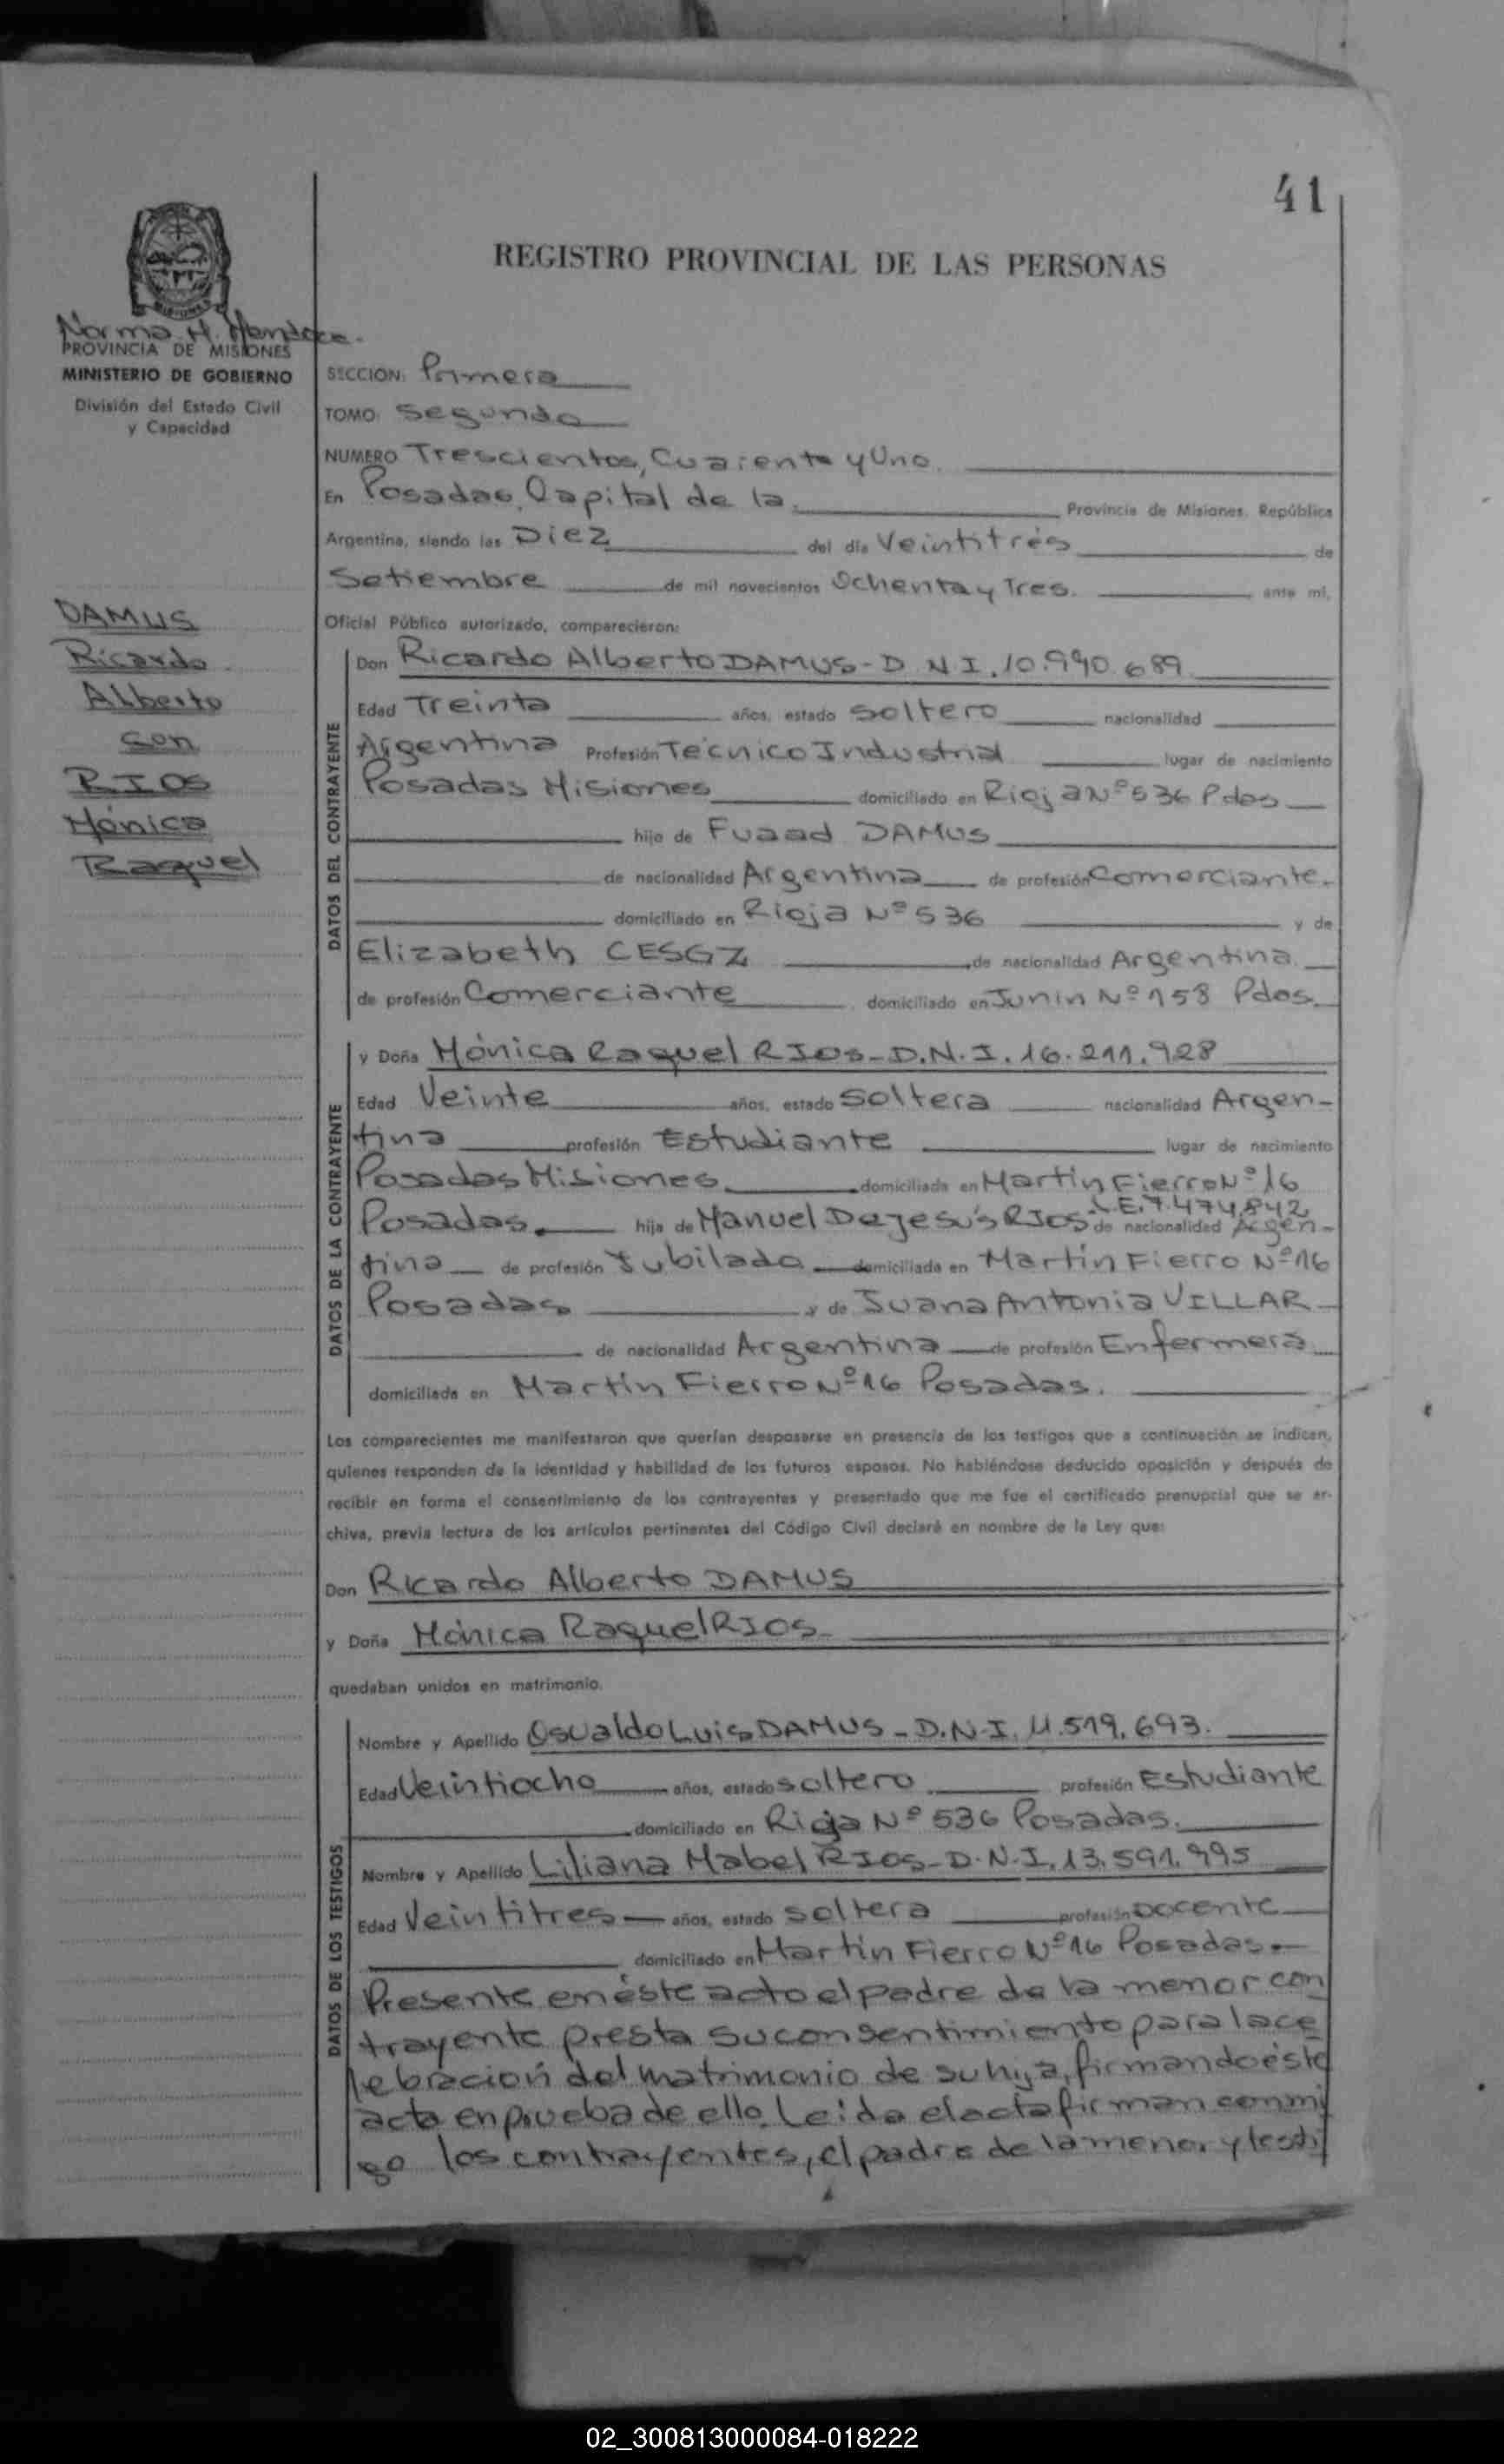 41
REGISTRO PROVINCIAL DE LAS PERSONAS
Norma H. Mendoza.
PROVINCIA DE MISIONES
MINISTERIO DE GOBIERNO
División del Estado Civil
y Capacidad
DAMUS
Ricardo
Alberto
con
RIOS
Mónica
Raquel
SECCION: Primera
TOMO: Segundo
NUMERO Trescientos, Cuarenta y Uno.
En Posadas, Capital de la, Provincia de Misiones, República
Argentina, siendo las Diez del día Veintitrés de
Setiembre de mil novecientos Ochenta y Tres. ante mí,
Oficial Público autorizado, comparecieron:
DATOS DEL CONTRAYENTE
Don Ricardo Alberto DAMUS - D.N.I. 10.990.689
Edad Treinta años, estado Soltero nacionalidad
Argentina Profesión Técnico Industrial lugar de nacimiento
Posadas Misiones domiciliado en Rioja Nº 536 Pdas
hijo de Fuaad DAMUS
de nacionalidad Argentina de profesión Comerciante.
domiciliado en Rioja Nº 536 y de
Elizabeth CESGZ de nacionalidad Argentina.
de profesión Comerciante domiciliado en Junin Nº 158 Pdas.
DATOS DE LA CONTRAYENTE
y Doña Mónica Raquel RIOS - D.N.I. 16.211.928
Edad Veinte años, estado Soltera nacionalidad Argen-
tina profesión Estudiante lugar de nacimiento
Posadas Misiones domiciliada en Martin Fierro Nº 16
L.E. 7.474.842
Posadas. hija de Manuel Dejesús RIOS de nacionalidad Argen-
tina de profesión Jubilado domiciliada en Martin Fierro Nº 16
Posadas y de Juana Antonia VILLAR
de nacionalidad Argentina de profesión Enfermera
domiciliada en Martin Fierro Nº 16 Posadas.
Los comparecientes me manifestaron que querían desposarse en presencia de los testigos que a continuación se indican,
quienes responden de la identidad y habilidad de los futuros esposos. No habiéndose deducido oposición y después de
recibir en forma el consentimiento de los contrayentes y presentado que me fue el certificado prenupcial que se ar-
chiva, previa lectura de los artículos pertinentes del Código Civil declaré en nombre de la Ley que:
Don Ricardo Alberto DAMUS
y Doña Mónica Raquel RIOS
quedaban unidos en matrimonio.
DATOS DE LOS TESTIGOS
Nombre y Apellido Osvaldo Luis DAMUS - D.N.I. 11.519.693.
Edad Veintiocho años, estado soltero profesión Estudiante
domiciliado en Rioja Nº 536 Posadas.
Nombre y Apellido Liliana Mabel RIOS - D.N.I. 13.591.995
Edad Veintitres años, estado soltera profesión Docente
domiciliado en Martin Fierro Nº 16 Posadas.
Presente en éste acto el padre de la menor con
trayente presta su consentimiento para la ce
lebración del matrimonio de su hija, firmando éste
acta en prueba de ello. Leida el acta firman conmi
go los contrayentes, el padre de la menor y testi
02_300813000084-018222